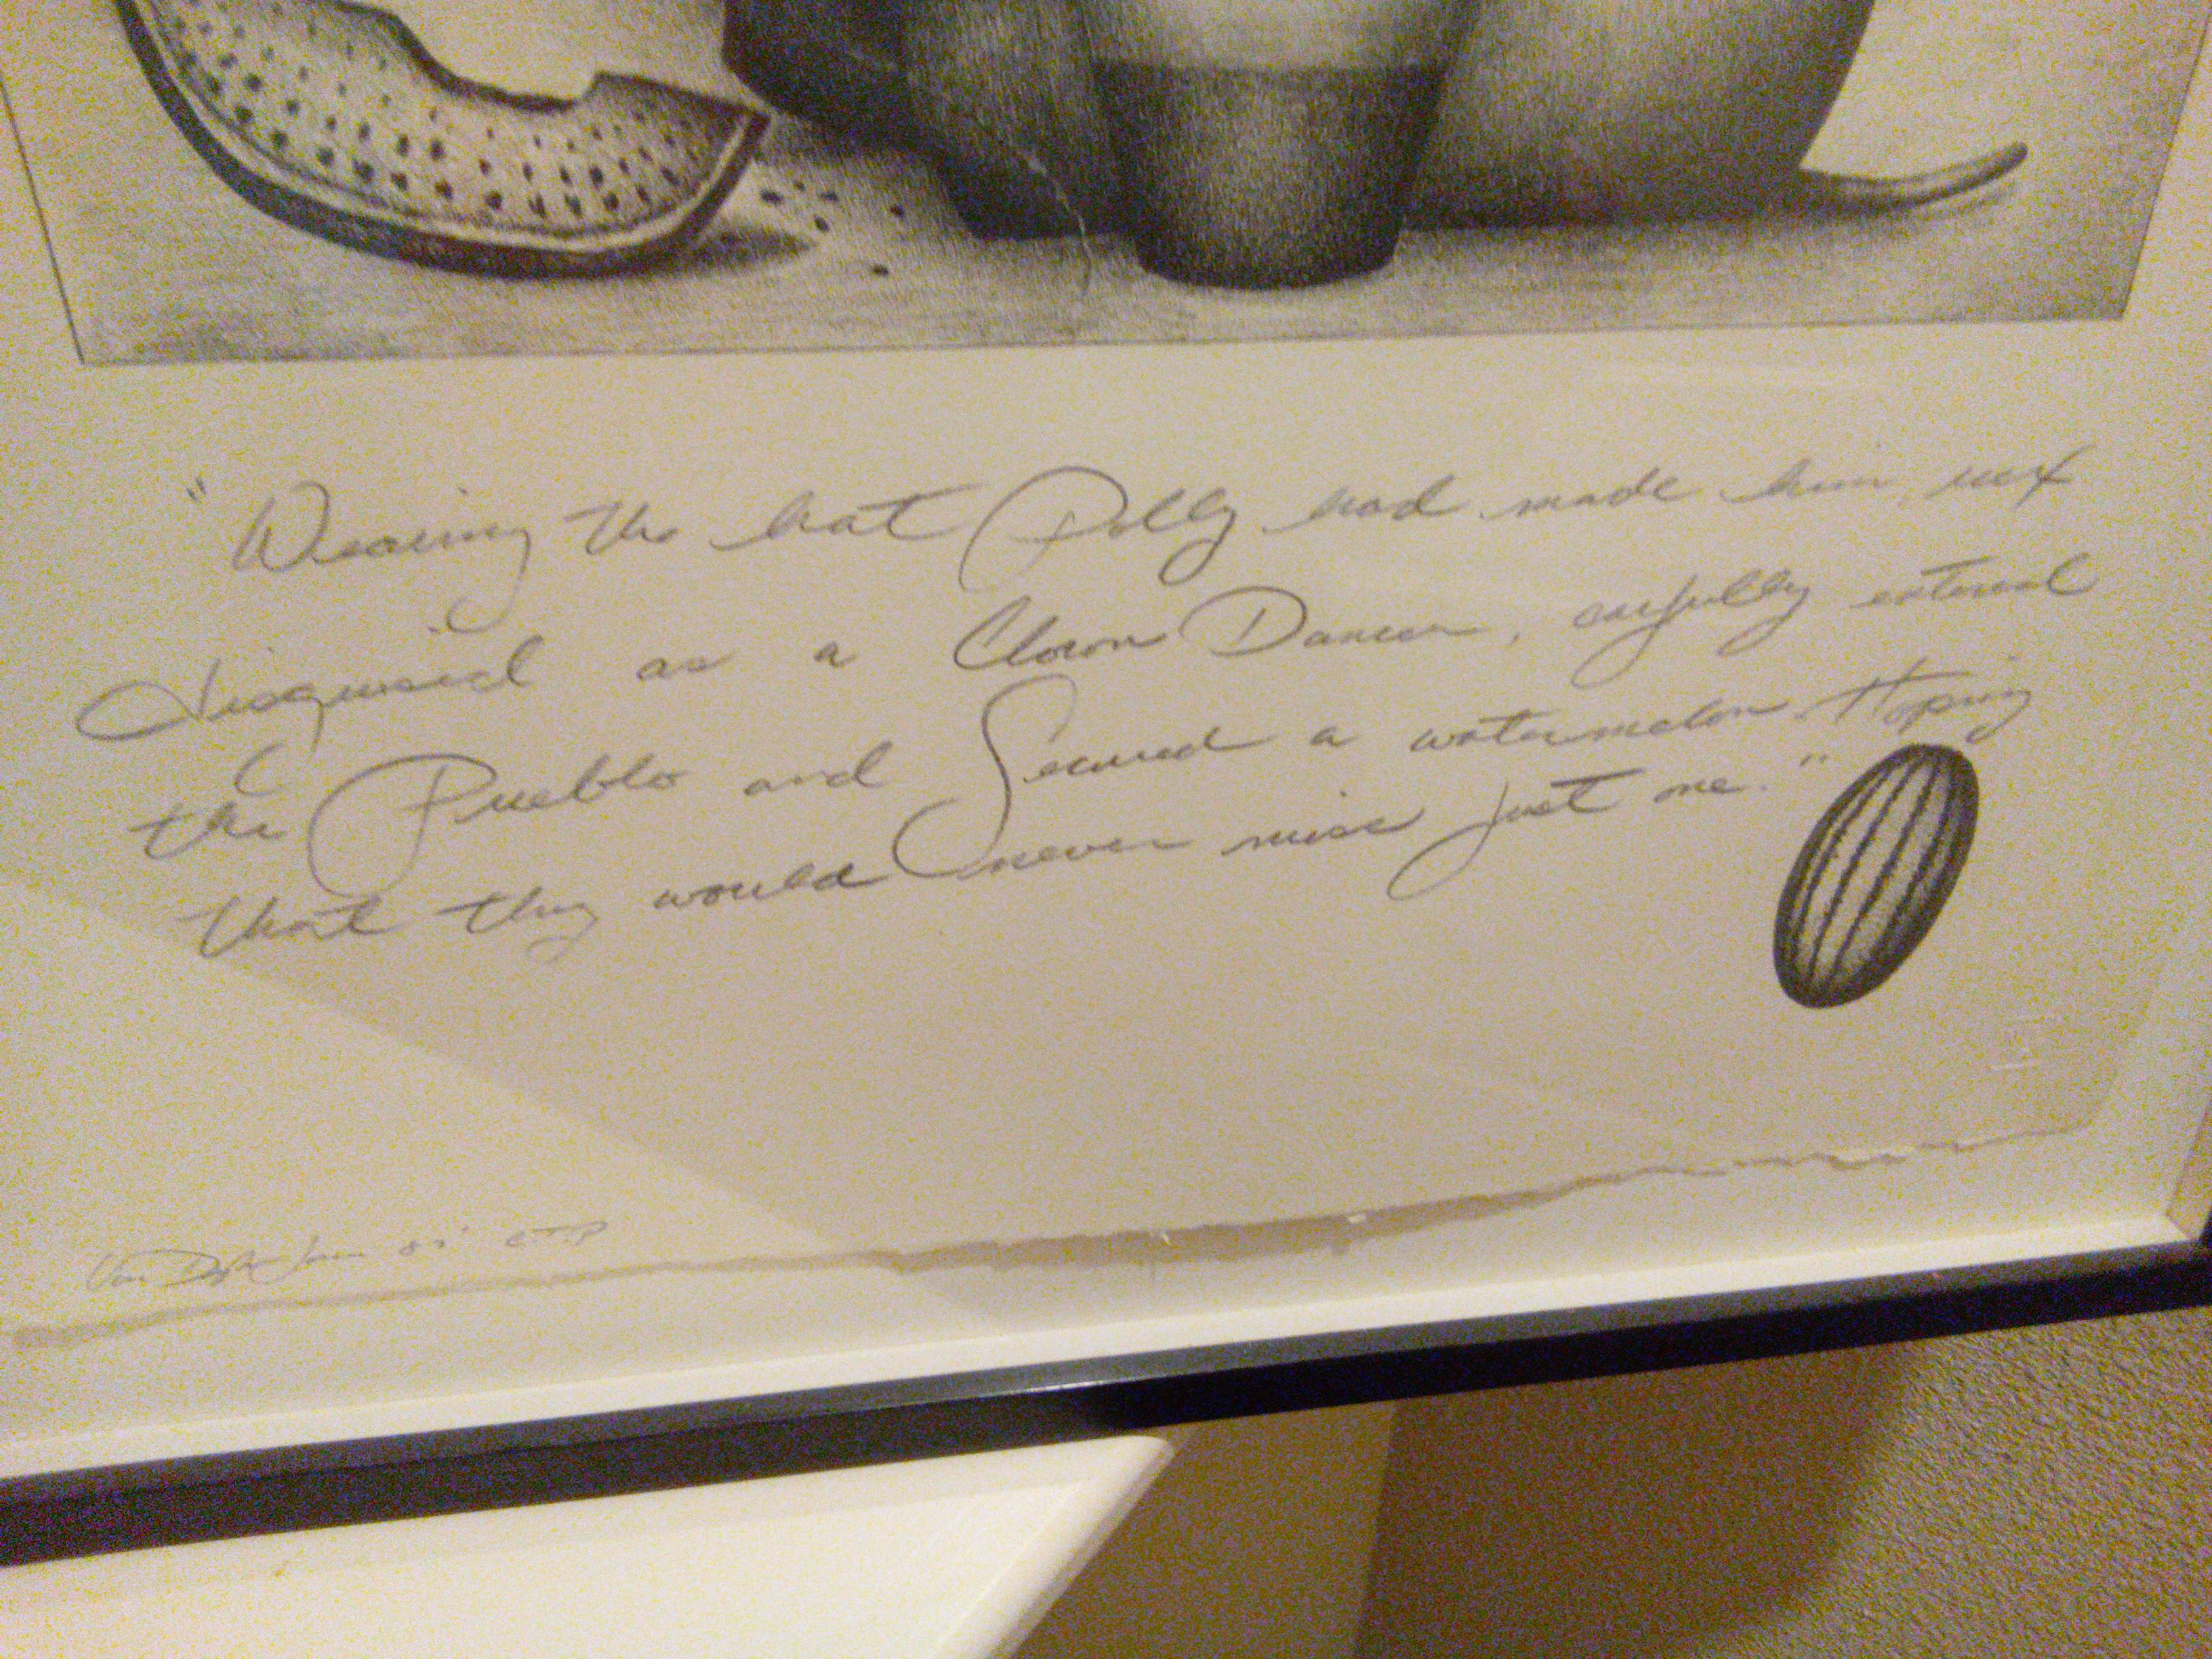 "Wearing the hat Polly had made him, rex
disguised as a Clown Dancer, carfully entered
the Pueblo and Secured a watermelon. Hoping
that they would never miss just one."
Van